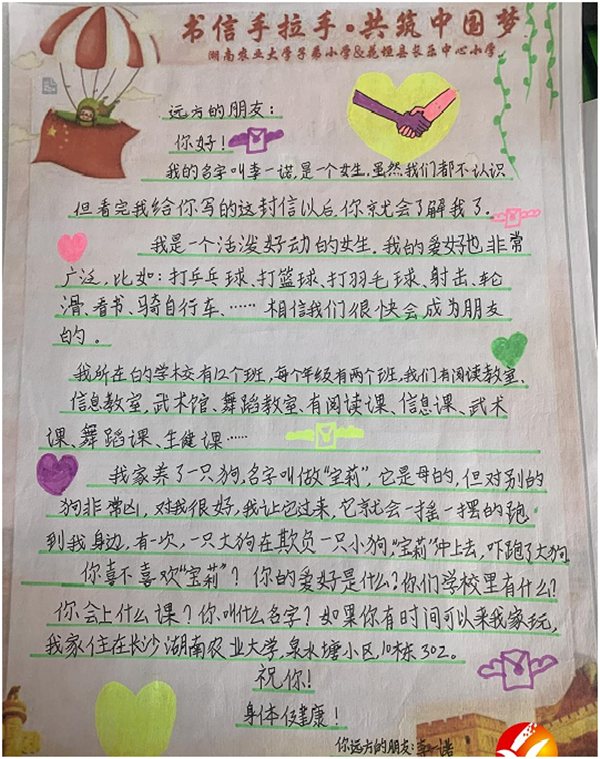 书信手拉手·共筑中国梦
湖南农业大学子弟小学&花垣县长乐中心小学
远方的朋友：
你好！
我的名字叫李一诺，是一个女生。虽然我们都不认识
但看完我给你写的这封信以后，你就会了解我了。
我是一个活泼好动的女生。我的爱好也非常
广泛，比如：打乒乓球、打篮球、打羽毛球、射击、轮
滑、看书、骑自行车、…… 相信我们很快会成为朋友
的。
我所在的学校有12个班，每个年级有两个班，我们有阅读教室、
信息教室，武术馆、舞蹈教室、有阅读课、信息课、武术
课、舞蹈课、生健课……
我家养了一只狗，名字叫做“宝莉”，它是母的，但对别的
狗非常凶，对我很好，我让它过来，它就会一摇一摆的跑
到我身边，有一次，一只大狗在欺负一只小狗，“宝莉”冲上去，吓跑了大狗
你喜不喜欢“宝莉”？你的爱好是什么？你们学校里有什么？
你会上什么课？你叫什么名字？如果你有时间可以来我家玩，
我家住在长沙湖南农业大学，泉水塘小区，10栋302。
祝你！
身体健康！
你远方的朋友：李一诺